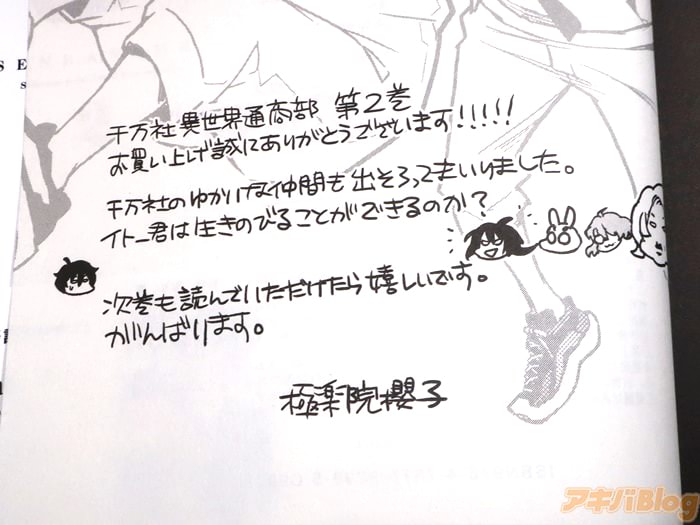 千万社異世界通商部 第2巻
お買い上げ誠にありがとうございます!!!!!
千万社のゆかいな仲間も出そろってまいりました。
イトー君は生きのびることができるのか?
次巻も読んでいただけたら嬉しいです。
がんばります。
極楽院櫻子
アキバBlog